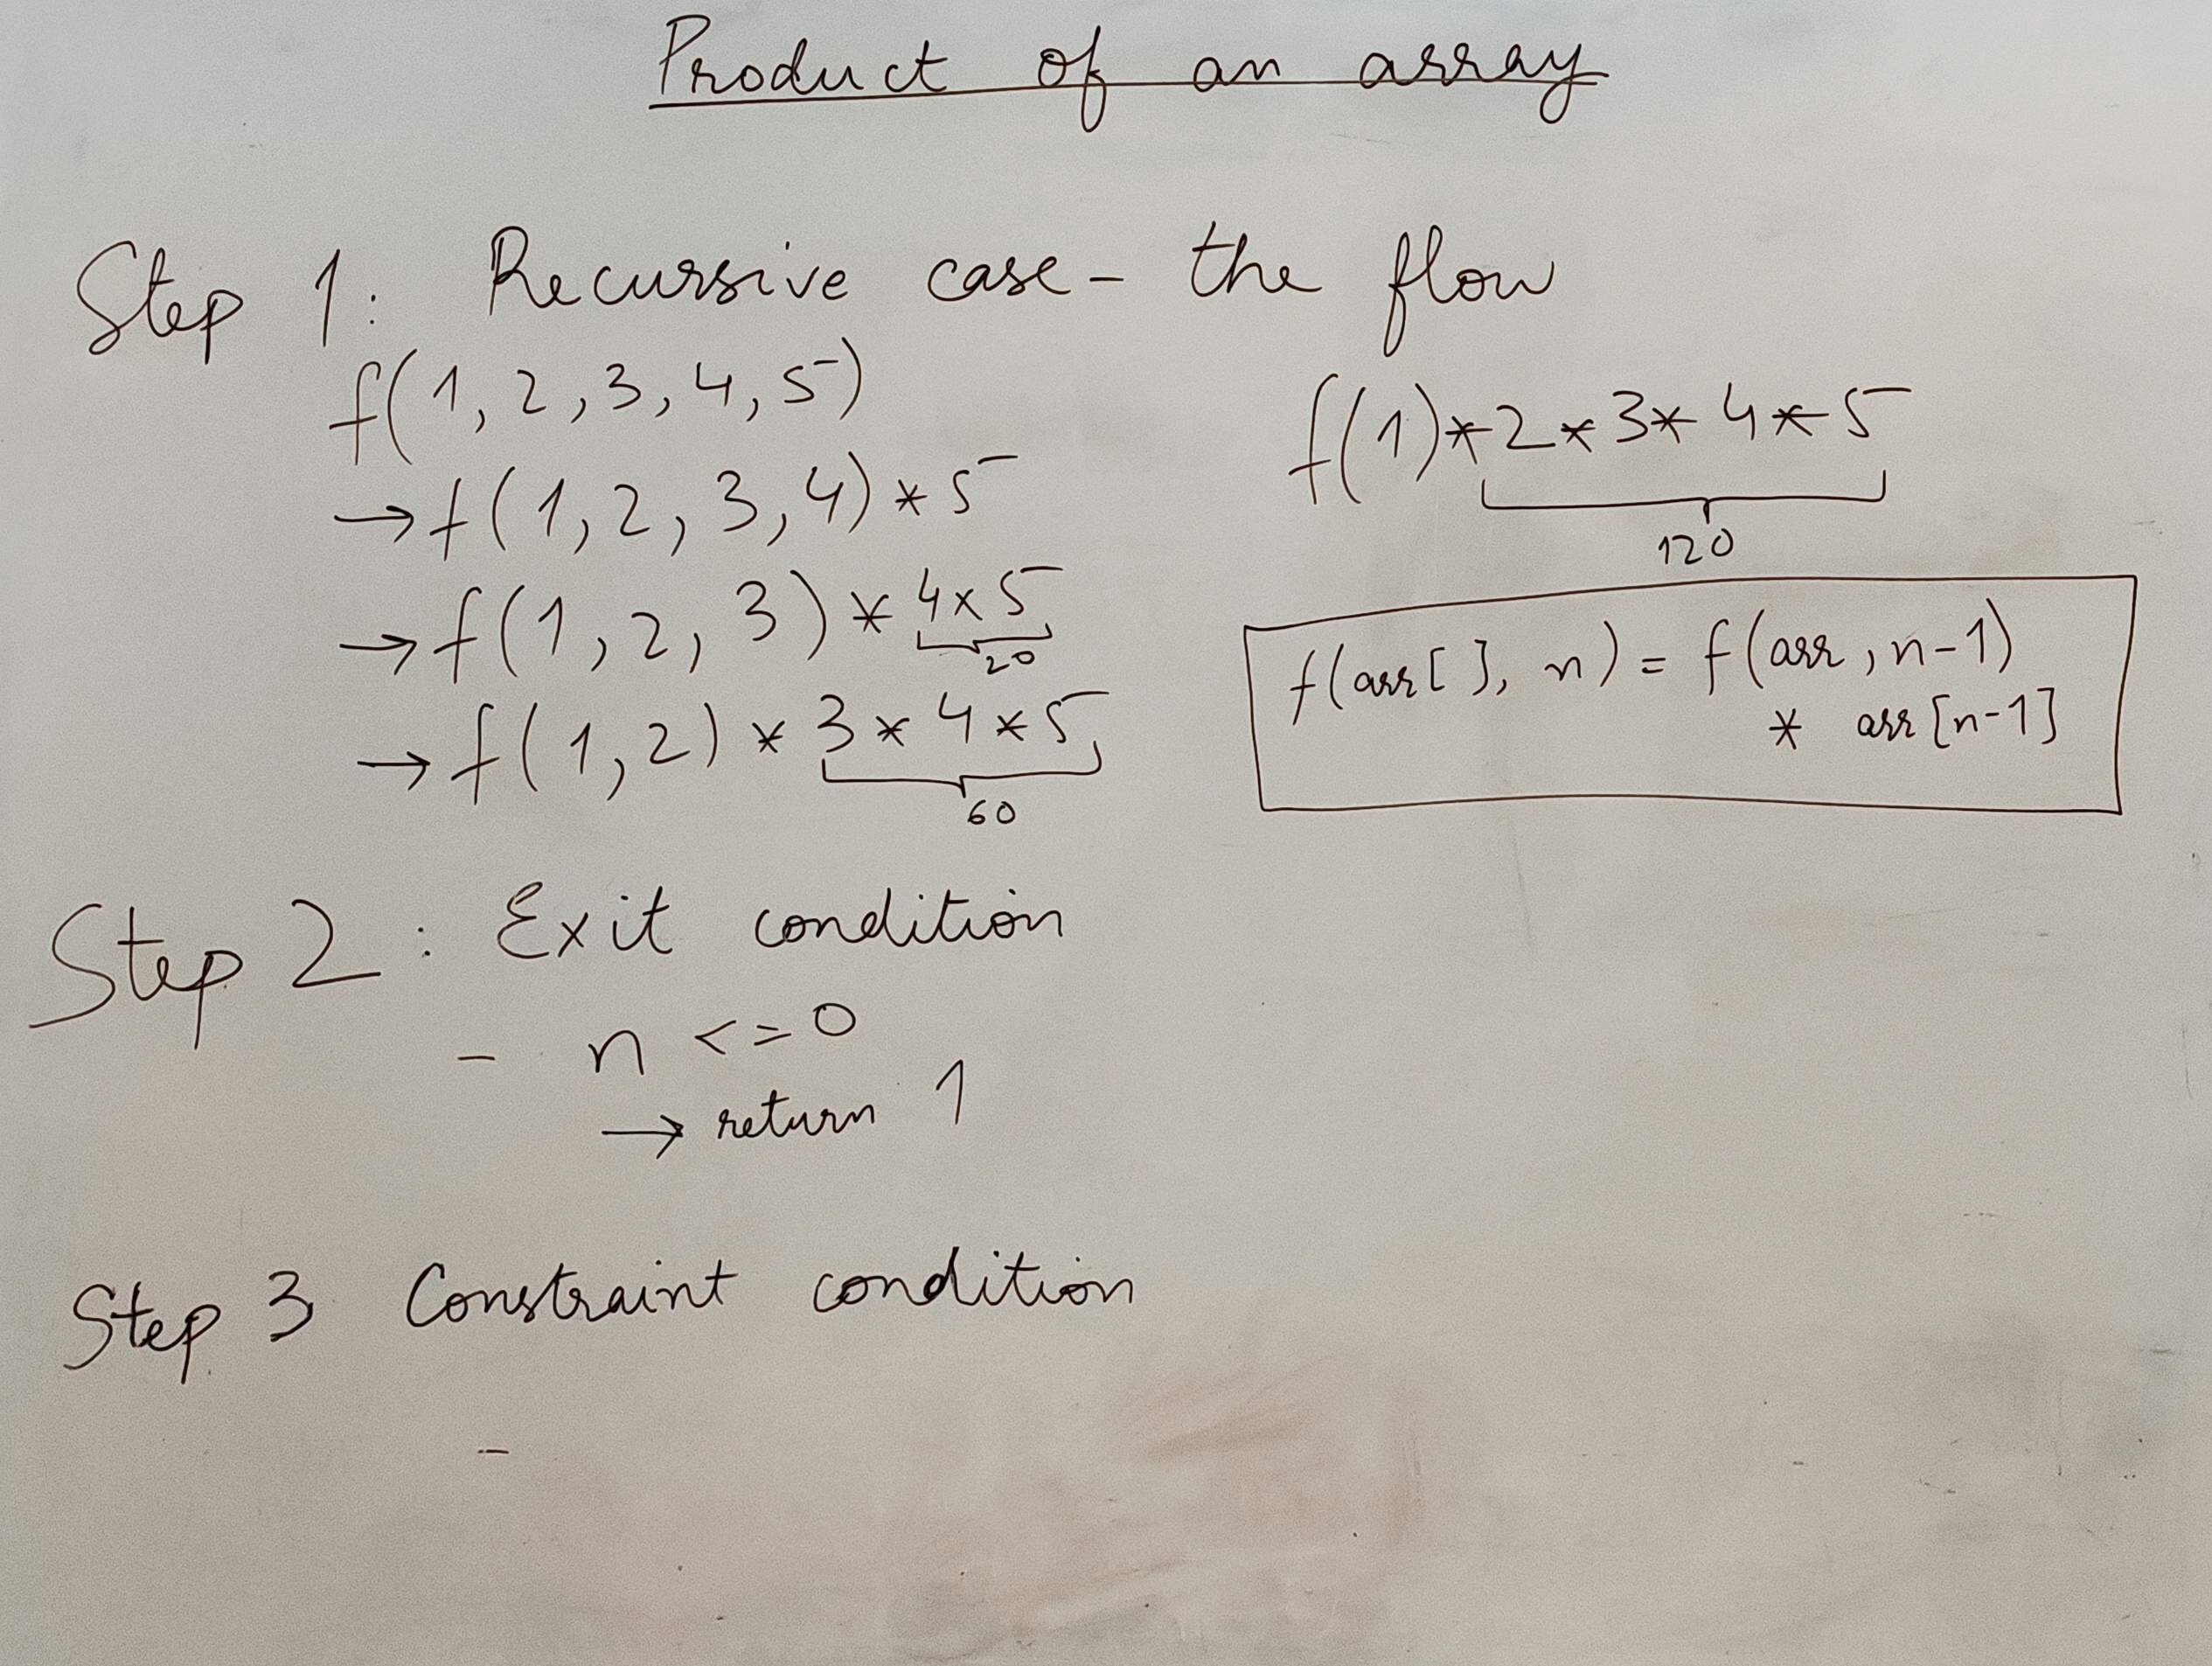 Product of an array
Step 1: Recursive case - the flow
f(1, 2, 3, 4, 5)
→ f(1, 2, 3, 4) * 5
→ f(1, 2, 3) * 4 x 5
20
→ f(1, 2) * 3 * 4 * 5
60
f(1) * 2 * 3 * 4 * 5
120
f(arr[ ], n) = f(arr, n-1)
* arr[n-1]
Step 2: Exit condition
- n <= 0
→ return 1
Step 3 Constraint condition
-